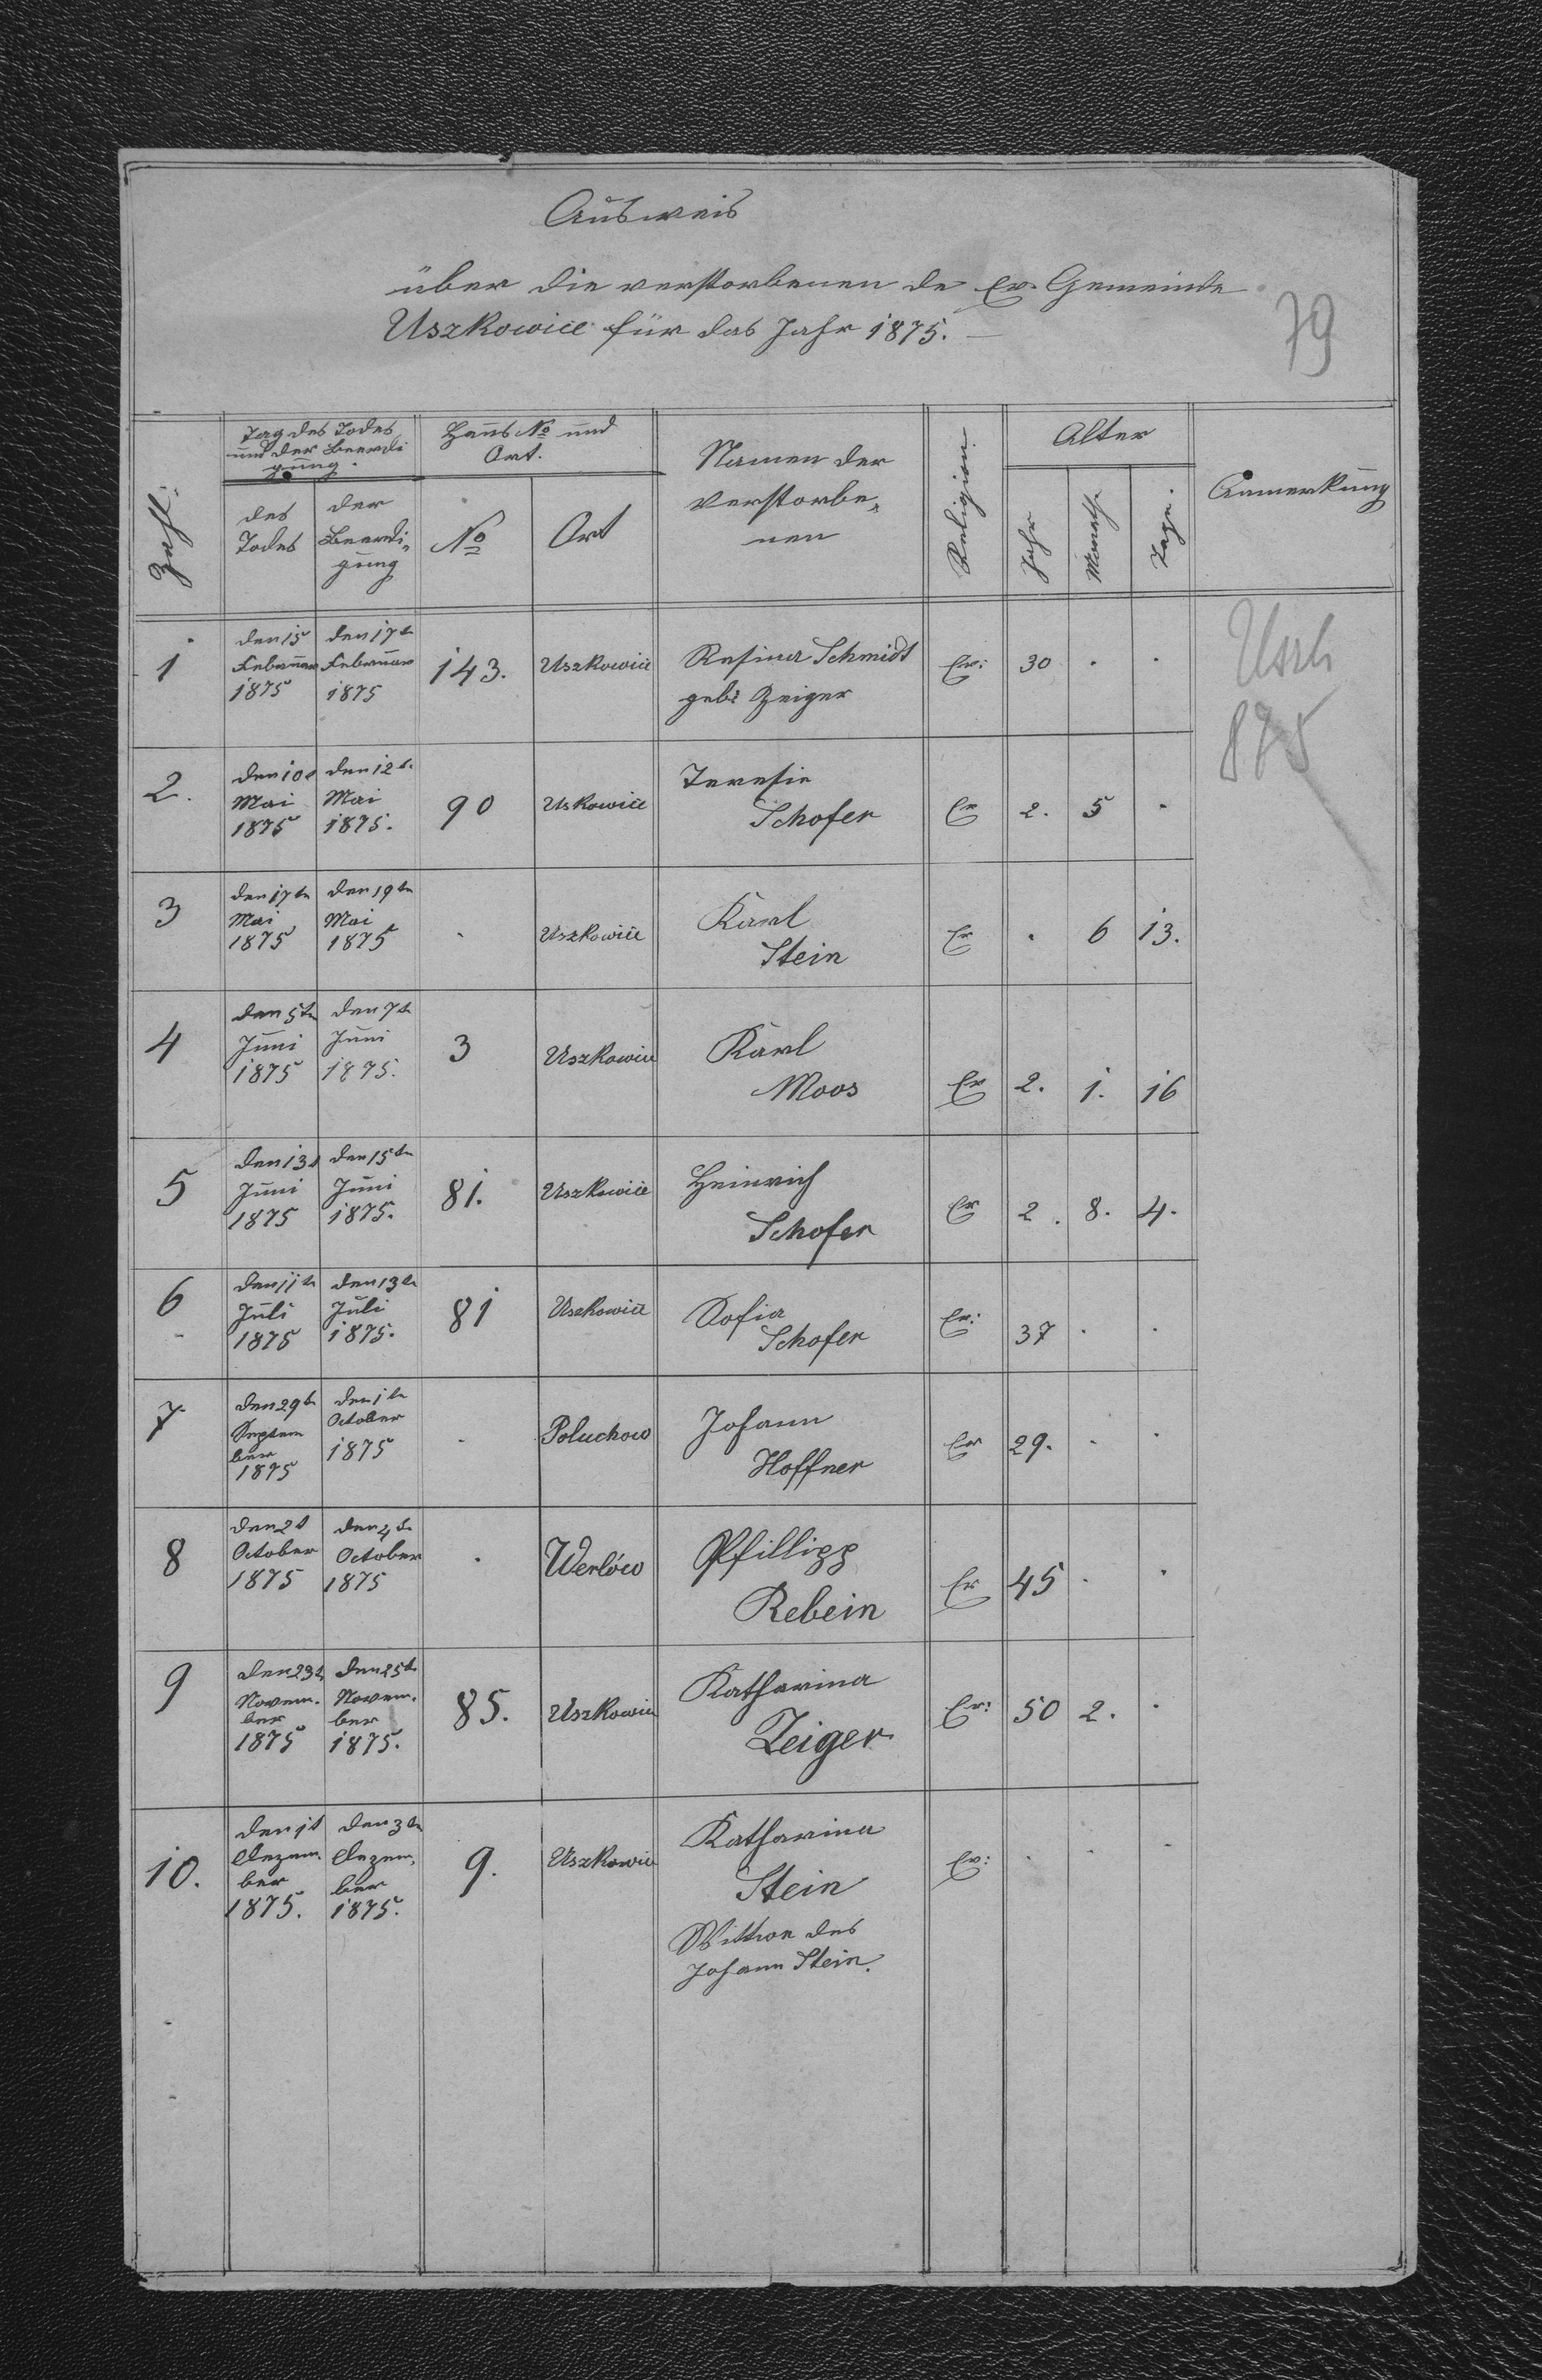 Ausweis
über die verstorbenen de Ev. Gemeinde
Uszkowice für das Jahr 1875.
79
Zahl.
Tag des Todes
und der Beerdi
gung.
Hauß No und
Ort.
Namen der
verstorbe-
nen
Religion
Alter
Anmerkung
des
Todes
der
Beerdi-
gung
No
Ort
Jahr
Monathe
Tage.
1 den 15 Februar 1875 den 17t Februar 1875 143. Uszkowice Rosina Schmidt geb: Zeiger Ev: 30 . .
Uszk
875
2. den 10t Mai 1875 den 12t. Mai 1875. 90 Uskowice Teresie Schofer Ev 2. 5 .
3 den 17tn Mai 1875 den 19tn Mai 1875 . Uszkowice Karl Stein Ev . 6 13.
4 den 5tn Juni 1875 den 7tn Juni 1875. 3 Uszkowice Karl Moos Ev 2. 1. 16
5 den 13t Juni 1875 den 15tn Juni 1875. 81. Uszkowice Heinrich Schofer Ev 2. 8. 4.
6 den 11tn Juli 1875 den 13tn Juli 1875. 81 Uszkowice Sofia Schofer Ev: 37 . .
7 den 29t Septem ber 1875 den 1tn October 1875 . Poluchow Johann Hoffner Ev 29. . .
8 den 2t October 1875 den 4tn October 1875 . Werlów Pfillipp Rebein Ev 45 . .
9 den 23t Novem. ber 1875 den 25tn Novem. ber 1875. 85. Uszkowice Katharina Zeiger Ev: 50 2. .
10. den 1t Dezem. ber 1875. den 3tn Dezem. ber 1875. 9. Uszkowice Katharina Stein Ev: . . .
Wittwe des
Johann Stein.